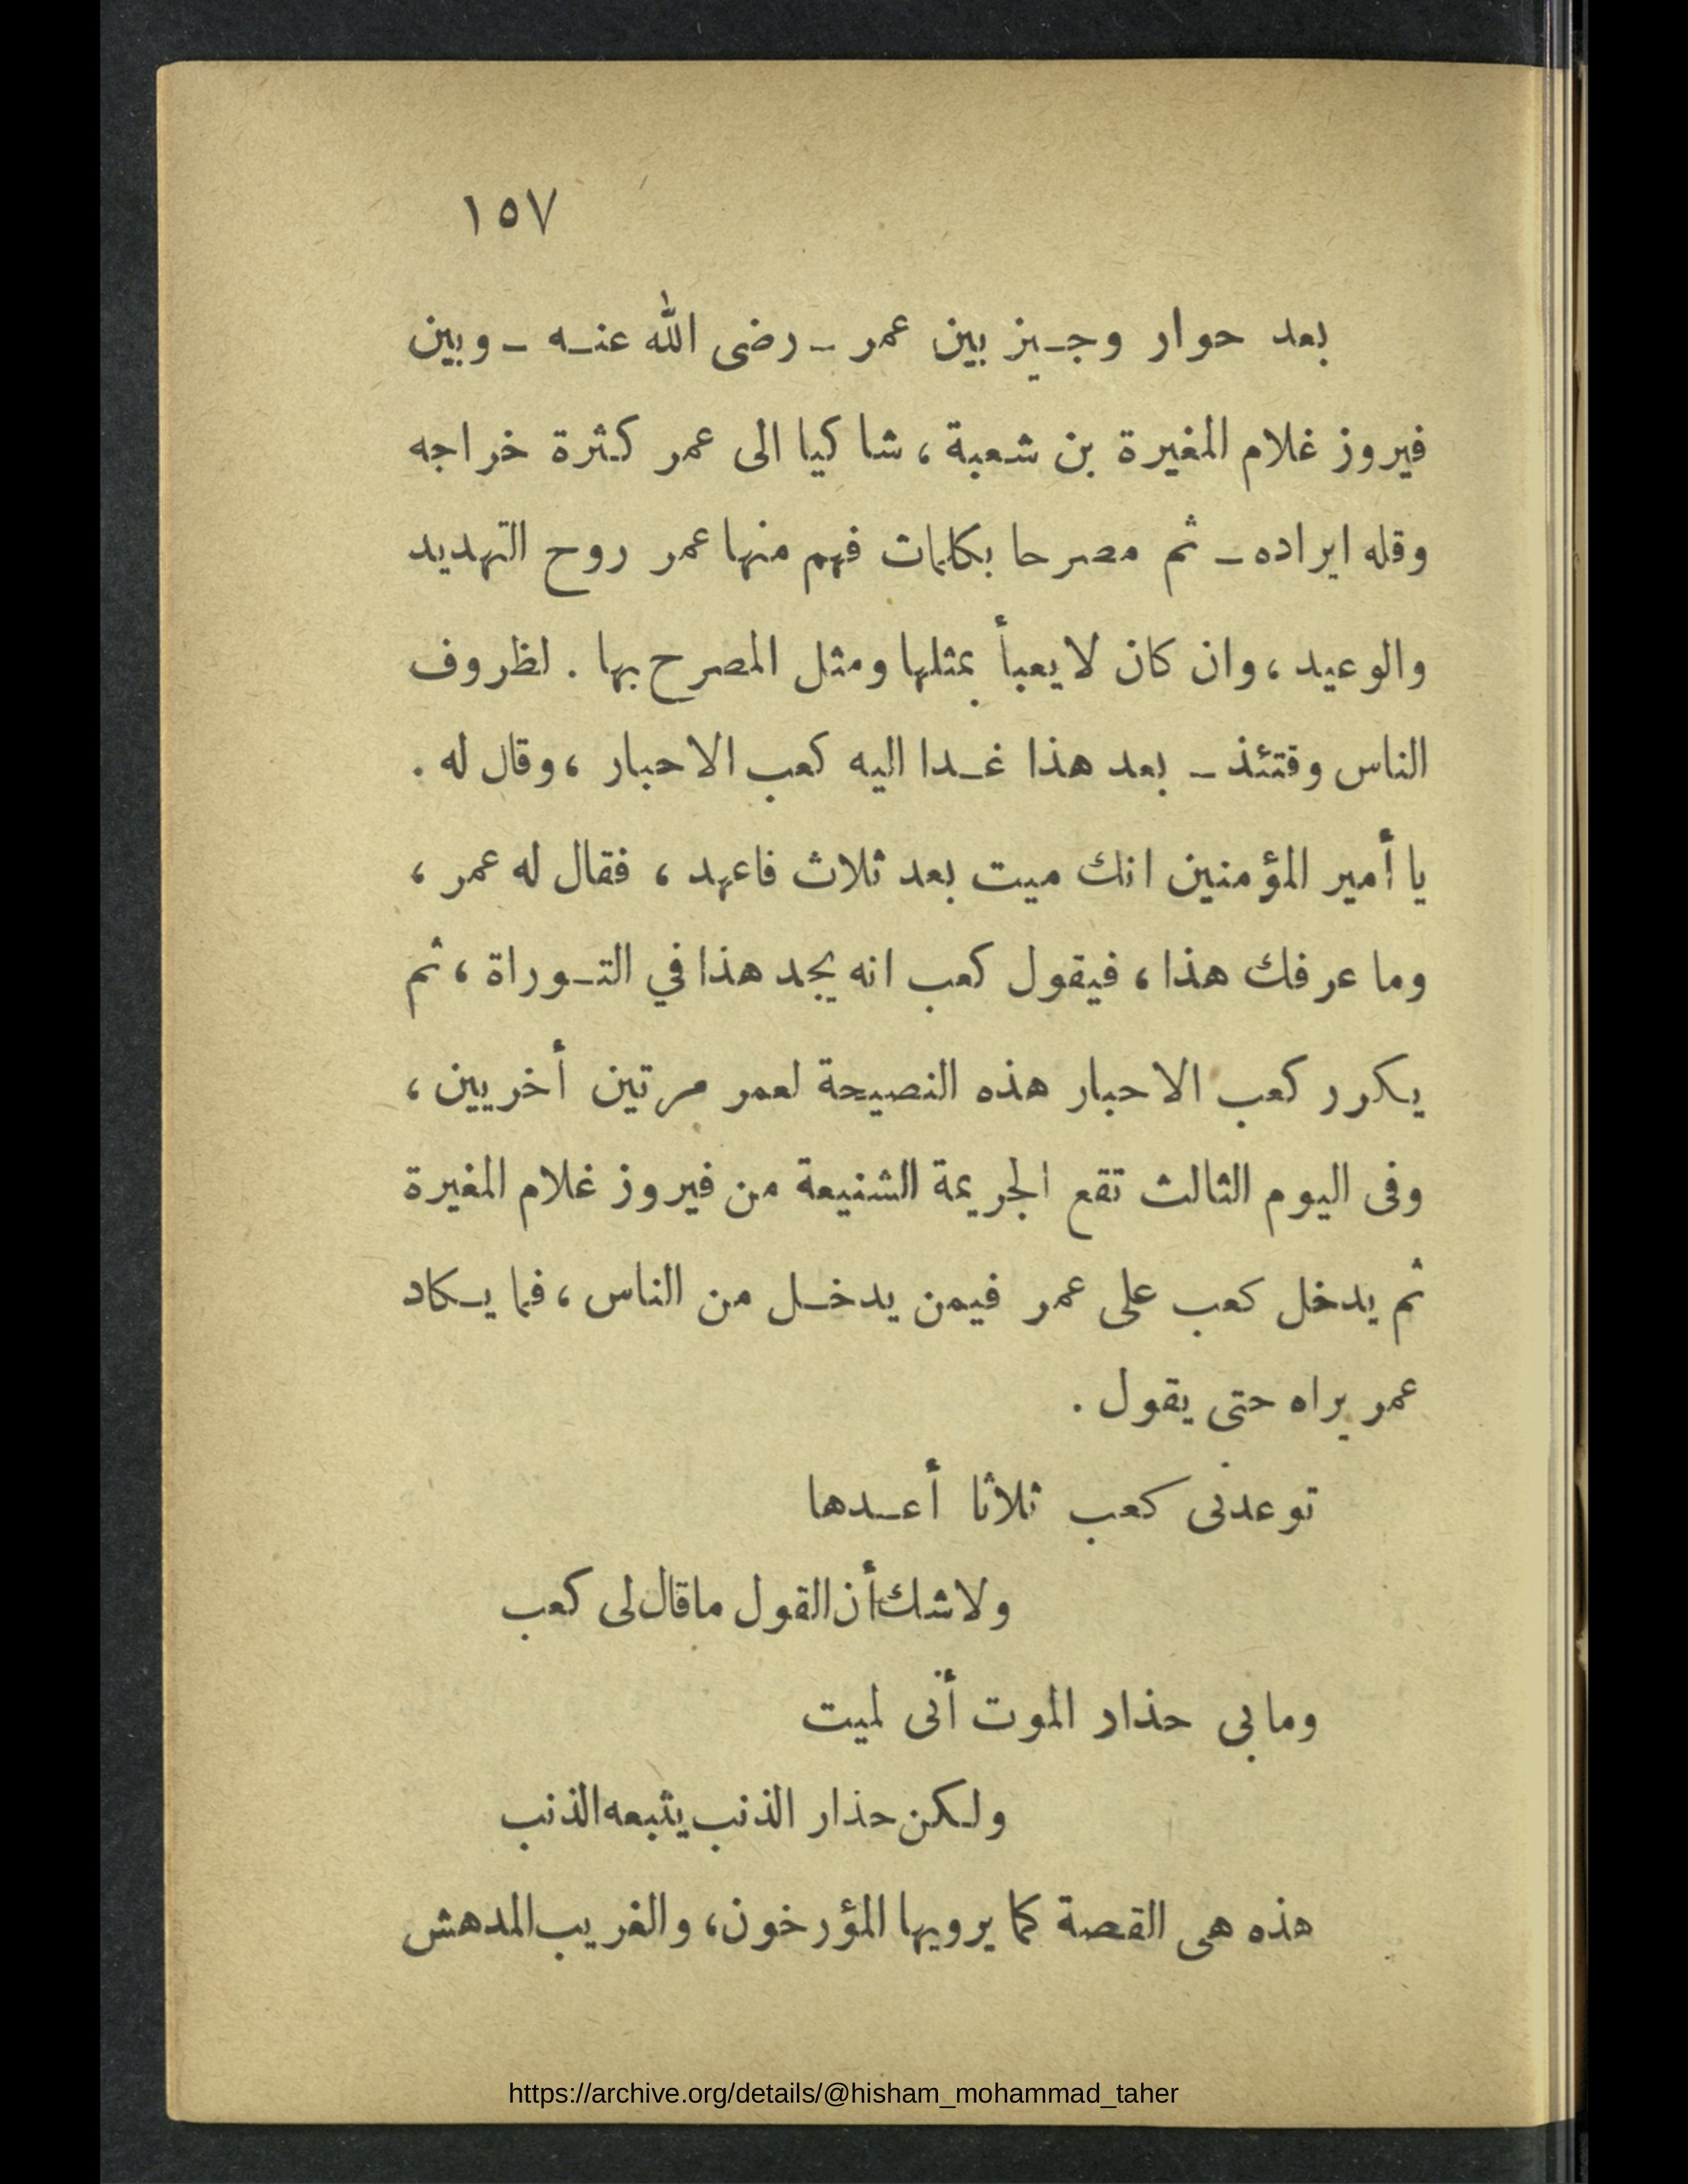 ١٥٧
بعد حوار وجيز بين عمر ـ رضى الله عنه ـ وبين
فيروز غلام المغيرة بن شعبة ، شاكيا الى عمر كثرة خراجه
وقله ايراده ـ ثم مصرحا بكلمات فهم منها عمر روح التهديد
والوعيد ، وان كان لا يعبأ بمثلها ومثل المصرح بها . لظروف
الناس وقتئذ ـ بعد هذا غدا اليه كعب الاحبار ، وقال له .
يا أمير المؤمنين انك ميت بعد ثلاث فاعهد ، فقال له عمر ،
وما عرفك هذا ، فيقول كعب انه يجد هذا في التوراة ، ثم
يكرر كعب الاحبار هذه النصيحة لعمر مرتين أخريين ،
وفى اليوم الثالث تقع الجريمة الشنيعة من فيروز غلام المغيرة
ثم يدخل كعب على عمر فيمن يدخل من الناس ، فما يكاد
عمر يراه حتى يقول .
توعدنى كعب ثلاثا أعدها
ولاشك أن القول ما قال لى كعب
ومابى حذار الموت أنى لميت
ولكن حذار الذنب يتبعه الذنب
هذه هى القصة كما يرويها المؤرخون ، والغريب المدهش
https://archive.org/details/@hisham_mohammad_taher